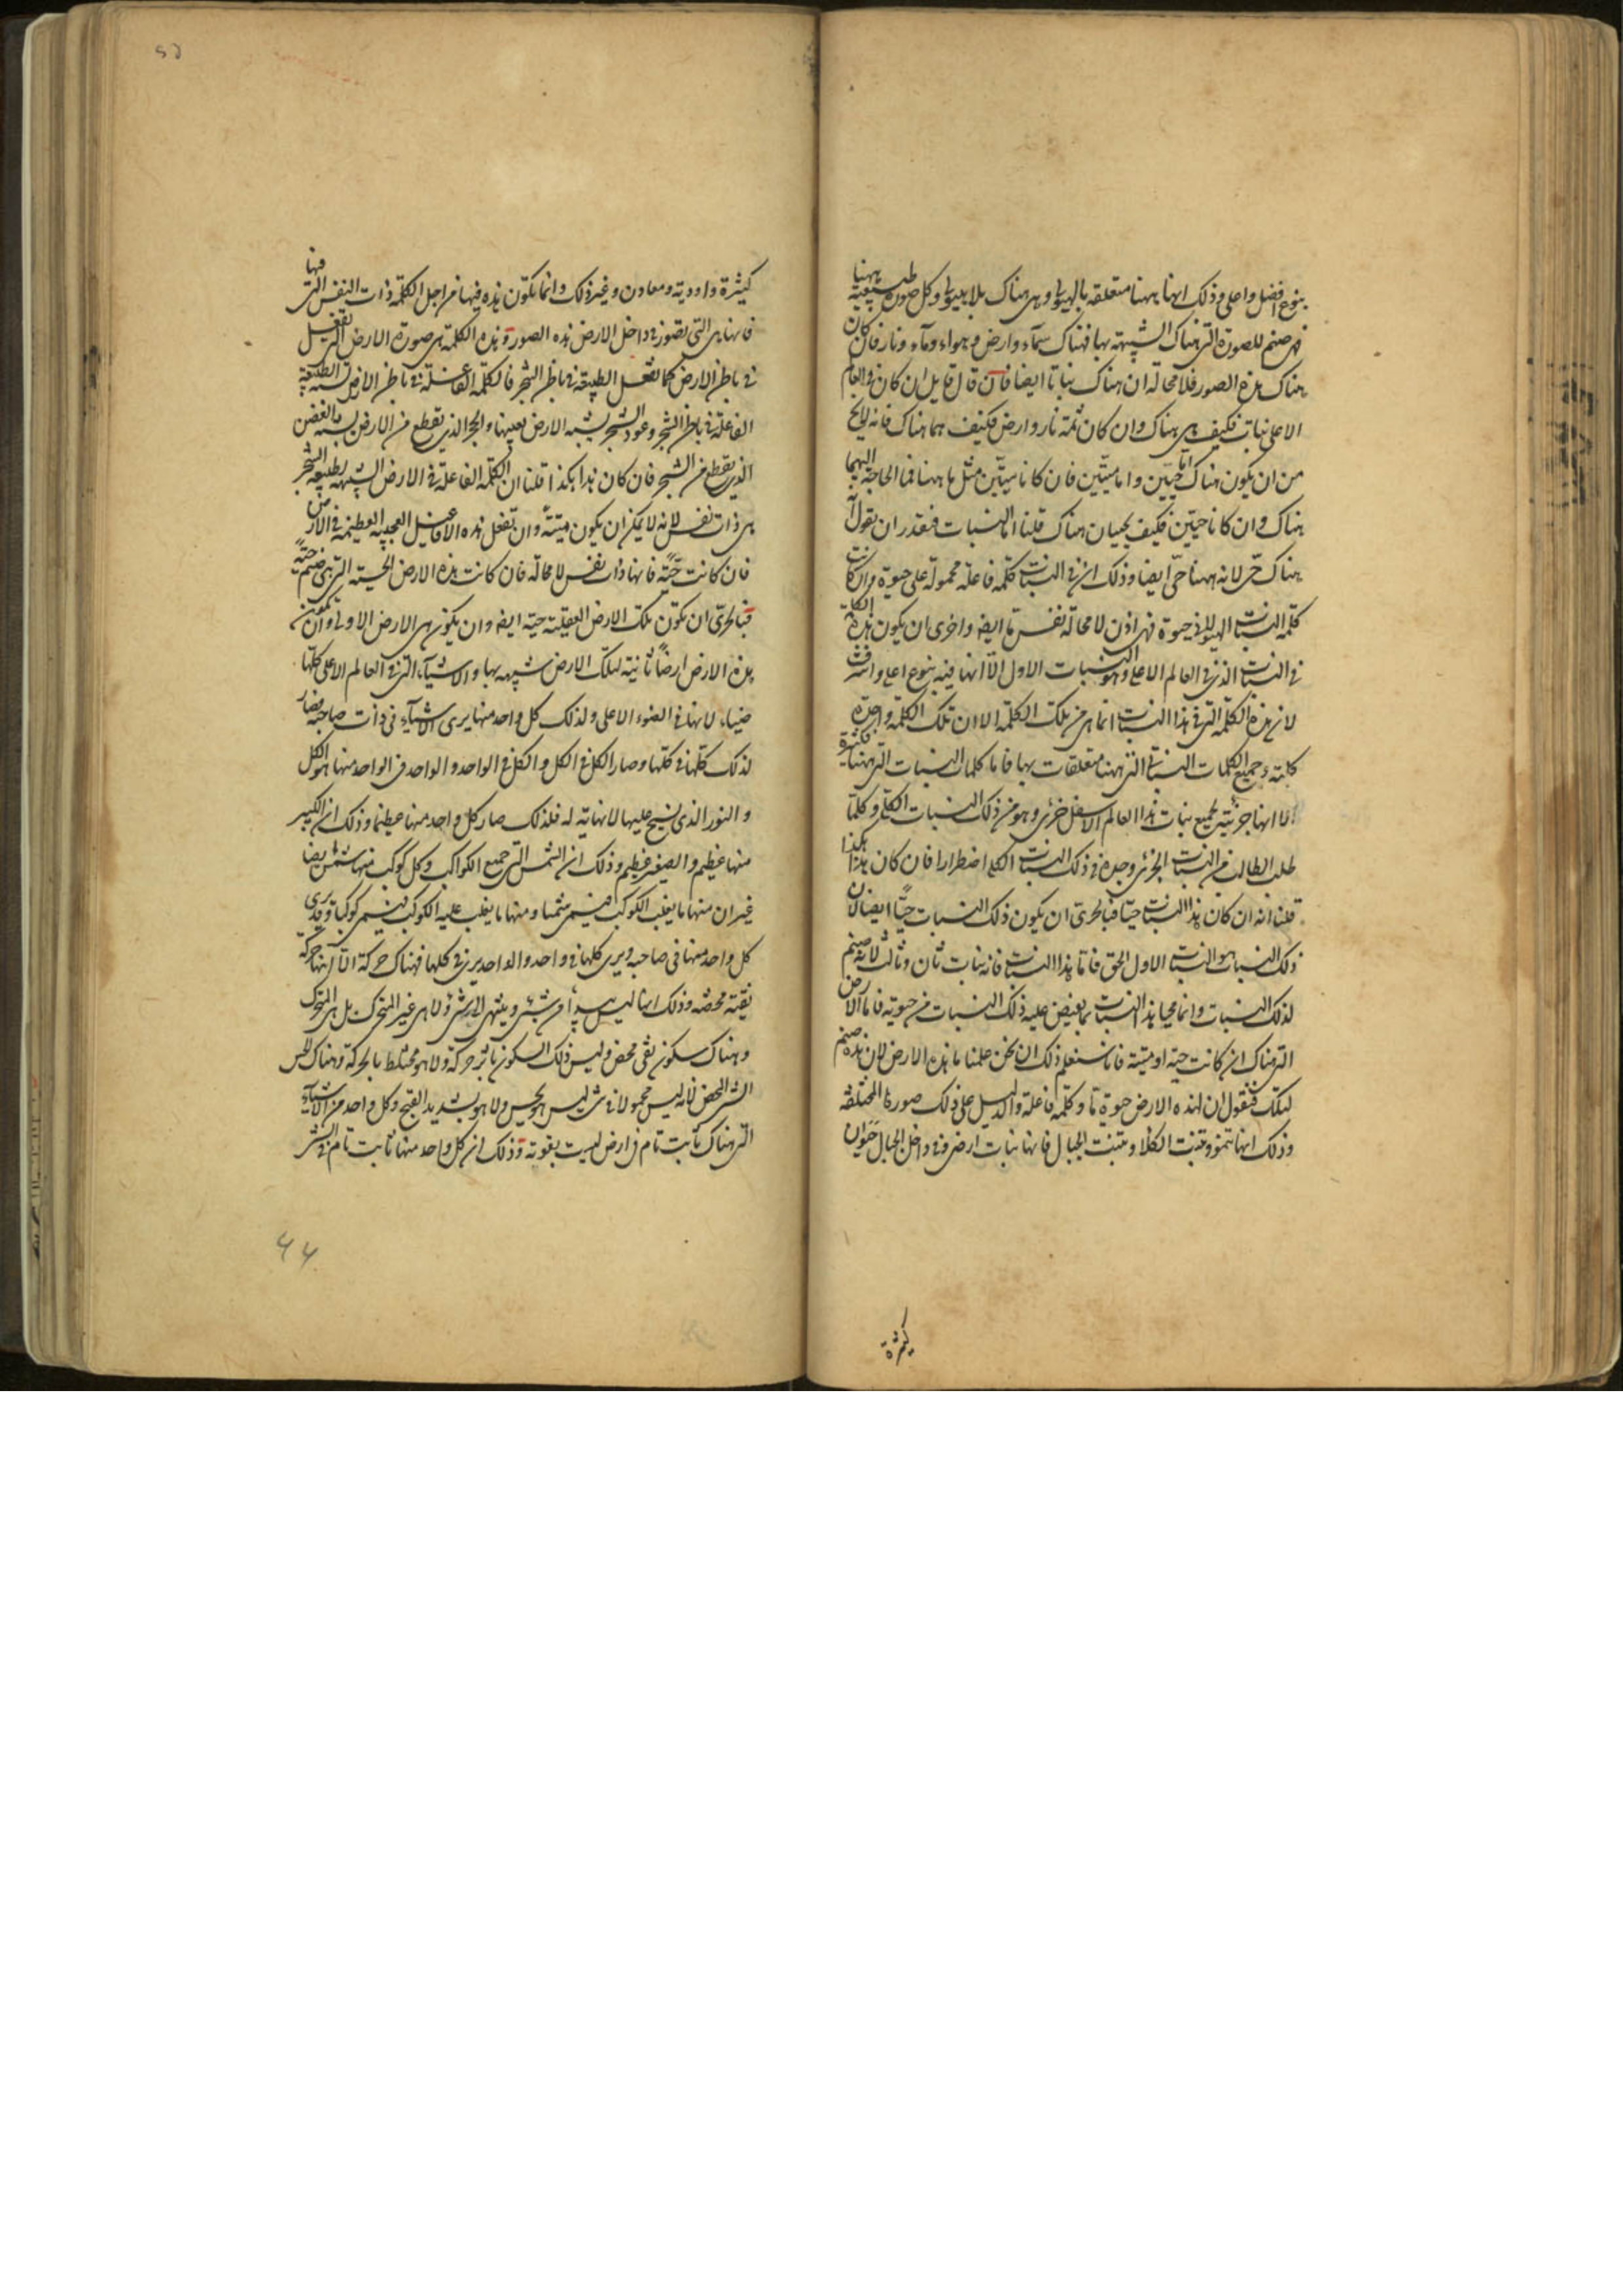 بنوع افضل واعلى وذلك انها ههنا متعلقة بالهيولى وهى هناك بلا هيولى وكل صورة طبيعية ههنا
فهى صنم للصورة التى هناك الشبيهة بها فهناك سماء وارض وهواء وماء ونار فان كان
هناك هذه الصور فلا محالة ان هناك نباتا ايضا فان قال قايل ان كان فى العالم
الاعلى نبات فكيف هى هناك وان كان ثمة نار وارض فكيف هما هناك فانه لا يخ
من ان يكون هناك اما حيّين واما ميّتين فان كانا ميّتين مثل ما ههنا فما الحاجة اليهما
هناك وان كانا حيّين فكيف يحييان هناك قلنا اما النبات فنقدر ان نقول انه
هناك حىّ لانه ههنا حىّ ايضا وذلك ان فى النبات كلمة فاعلة محمولة على حيوة وان كانت
كلمة النبات الهيولانى حيوة فهى اذن لا محالة نفس ما ايضا واحرى ان يكون هذه الكلمة
فى النبات الذى فى العالم الاعلى وهو النبات الاول الّا انها فيه بنوع اعلى واشرف
لان هذه الكلمة التى فى هذا النبات انما هى من تلك الكلمة الا ان تلك الكلمة واحدة
كلية وجميع الكلمات النباتية التى ههنا متعلقات بها فاما كلمات النبات التى ههنا فكثيرة
الا انها جزئية فجميع نبات هذا العالم الاسفل جزئى وهو من ذلك النبات الكلى وكلما
طلب الطالب من النبات الجزئى وجده فى ذلك النبات الكلى اضطرارا فان كان هذا هكذا
قلنا انه ان كان هذا النبات حيّا فبالحرى ان يكون ذلك النبات حيًّا ايضا لان
ذلك النبات هو النبات الاول الحق فاما هذا النبات فانه نبات ثان وثالث لانه صنم
لذلك النبات وانما يحيا هذا النبات بما يفيض عليه ذلك النبات من حيوته فاما الارض
التى هناك ان كانت حية او ميتة فانا سنعلم ذلك ان نحن علمنا ما هذه الارض لان هذه صنم
لتلك فنقول ان لهذه الارض حيوة ما وكلمة فاعلة والدليل على ذلك صورها المختلفة
وذلك انها تنمو وتنبت الكلا وتنبت الجبال فانها نبات ارضى وفى داخل الجبال حيوان
كثيرة
كثيرة واودية ومعادن وغير ذلك وانما تكون هذه فيها من اجل الكلمة ذات النفس التى فيها
فانها هى التى تصور فى داخل الارض هذه الصور وهذه الكلمة هى صورة الارض التى تفعل
فى باطن الارض كما تفعل الطبيعة فى باطن الشجر فالكلمة الفاعلة فى باطن الارض تشبه الطبيعة
الفاعلة فى باطن الشجر وعود الشجر يشبه الارض بعينها والحجر الذى يقطع من الارض يشبه بالغصن
الذى يقطع من الشجر فان كان هذا هكذا قلنا ان الكلمة الفاعلة فى الارض الشبيهة بطبيعة الشجر
هى ذات نفس لانه لا يمكن ان يكون ميتة وان تفعل هذه الافاعيل العجيبة العظيمة فى الارض
فان كانت حيّة فانها ذات نفس لا محالة فان كانت هذه الارض الحسية التى هى صنم حيّة
فبالحرى ان تكون تلك الارض العقلية حية ايضا وان يكون هى الارض الاولى وان تكون
هذه الارض ارضًا ثانية لتلك الارض شبيهة بها والاشياء التى فى العالم الاعلى كلها
ضياء لانها فى الضوء الاعلى ولذلك كل واحد منها يرى الاشياء فى ذات صاحبه فصار
لذلك كلها فى كلها وصار الكل فى الكل والكل فى الواحد والواحد فى الواحد منها هو الكل
والنور الذى يسيح عليها لا نهاية له فلذلك صار كل واحد منها عظيما وذلك ان الكبير
منها عظيم والصغير عظيم وذلك ان الشمس التى جميع الكواكب وكل كوكب منها شمس ايضا
غير ان منها ما يغلب الكوكب فيسمى شمسا ومنها ما يغلب عليه الكوكب فيسمى كوكبا وقد يرى
كل واحد منها فى صاحبه ويرى كلها فى واحد والواحد يرى فى كلها فهناك حركة الا انها حركة
نقية محضة وذلك انها ليس يبدأ من شئ وينتهى الى شئ ولا هى غير المتحرك بل هى المتحرك
وهناك سكون نقى محض وليس ذلك السكون باثر حركة ولا هو مختلط بالحركة وهناك
الشر المحض لانه ليس محمولا فى شئ ليس هو بحس ولا هو بشديد القبح وكل واحد من الاشياء
التى هناك ثابت تام فى ارض ليست بغريبة وذلك ان كل واحد منها ثابت تام فى الشئ
۶۶